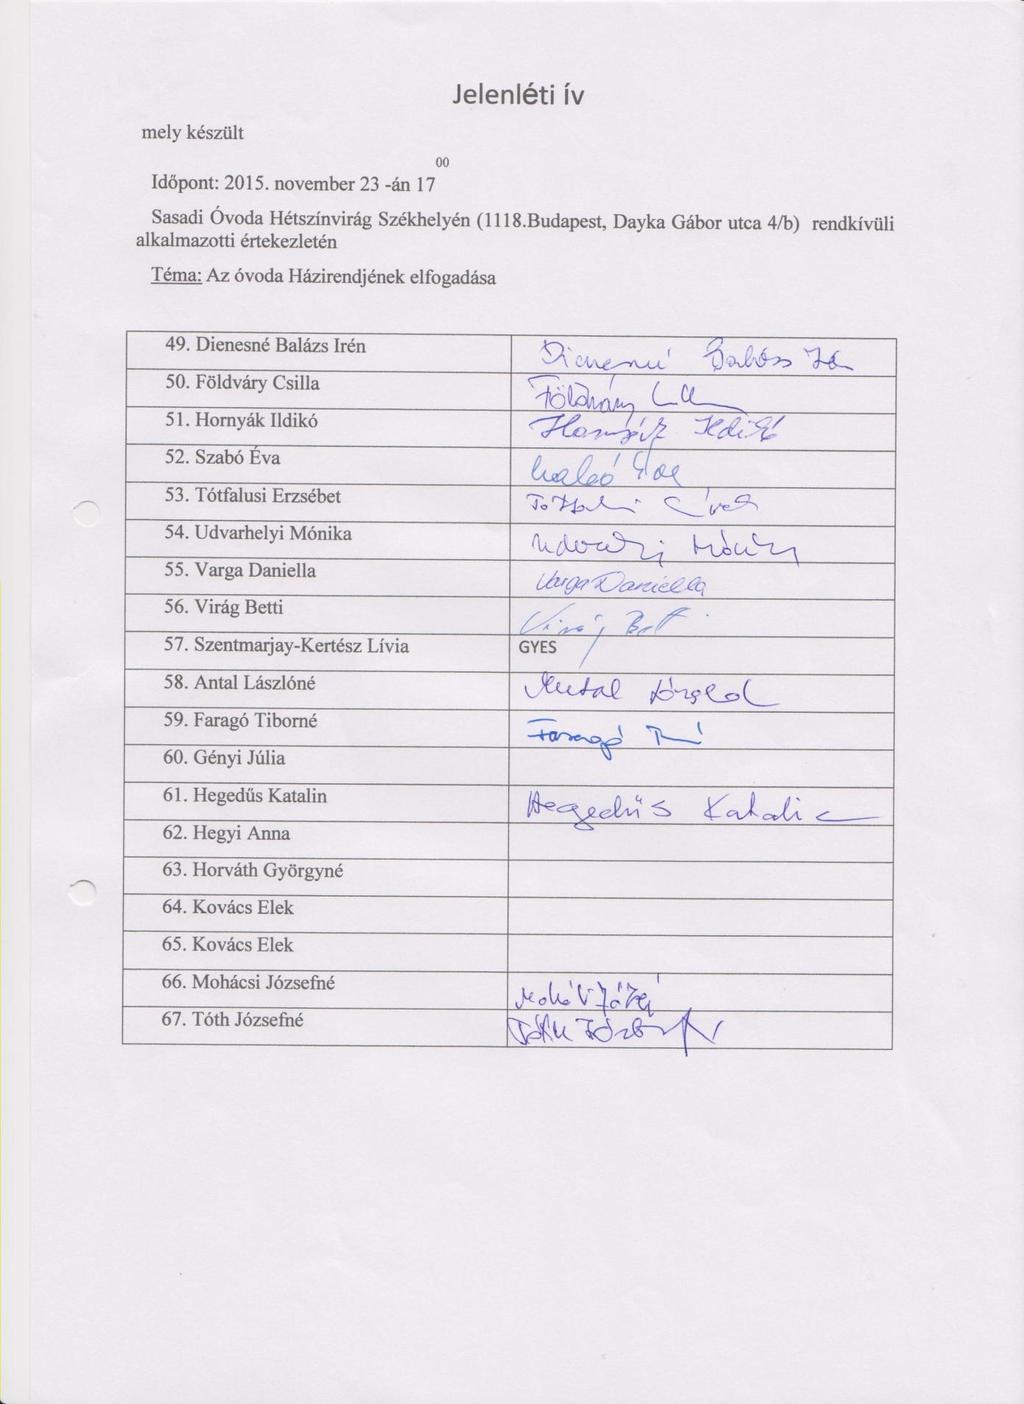 Jelenléti ív
mely készült
Időpont: 2015. november 23 -án 17 00
Sasadi Óvoda Hétszínvirág Székhelyén (1118.Budapest, Dayka Gábor utca 4/b) rendkívüli
alkalmazotti értekezletén
Téma: Az óvoda Házirendjének elfogadása
49. Dienesné Balázs Irén Dienesné Balázs
50. Földváry Csilla Földváry
51. Hornyák Ildikó Hornyák Ildikó
52. Szabó Éva Szabó Éva
53. Tótfalusi Erzsébet
54. Udvarhelyi Mónika Mónika
55. Varga Daniella Varga Daniella
56. Virág Betti Virág Bett
57. Szentmarjay-Kertész Lívia GYES
58. Antal Lászlóné Antal
59. Faragó Tiborné Faragó
60. Gényi Júlia
61. Hegedűs Katalin Hegedűs Katalin
62. Hegyi Anna
63. Horváth Györgyné
64. Kovács Elek
65. Kovács Elek
66. Mohácsi Józsefné
67. Tóth Józsefné Tóth